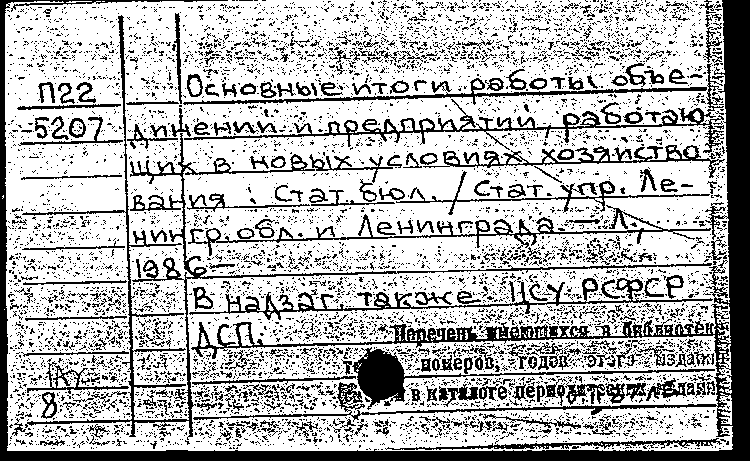 П22
-5207
Основные итоги работы объе-
динений и предприятий, работаю
щих в новых условиях хозяйство
вания : Стат. бюл. / Стат. упр. Ле-
нингр. обл. и Ленинграда. — Л.,
1986—
В надзаг. также: ЦСУ РСФСР.
ДСП.
Перечень имеющихся в библиотеке
номеров, годов этого издани
в каталоге
8